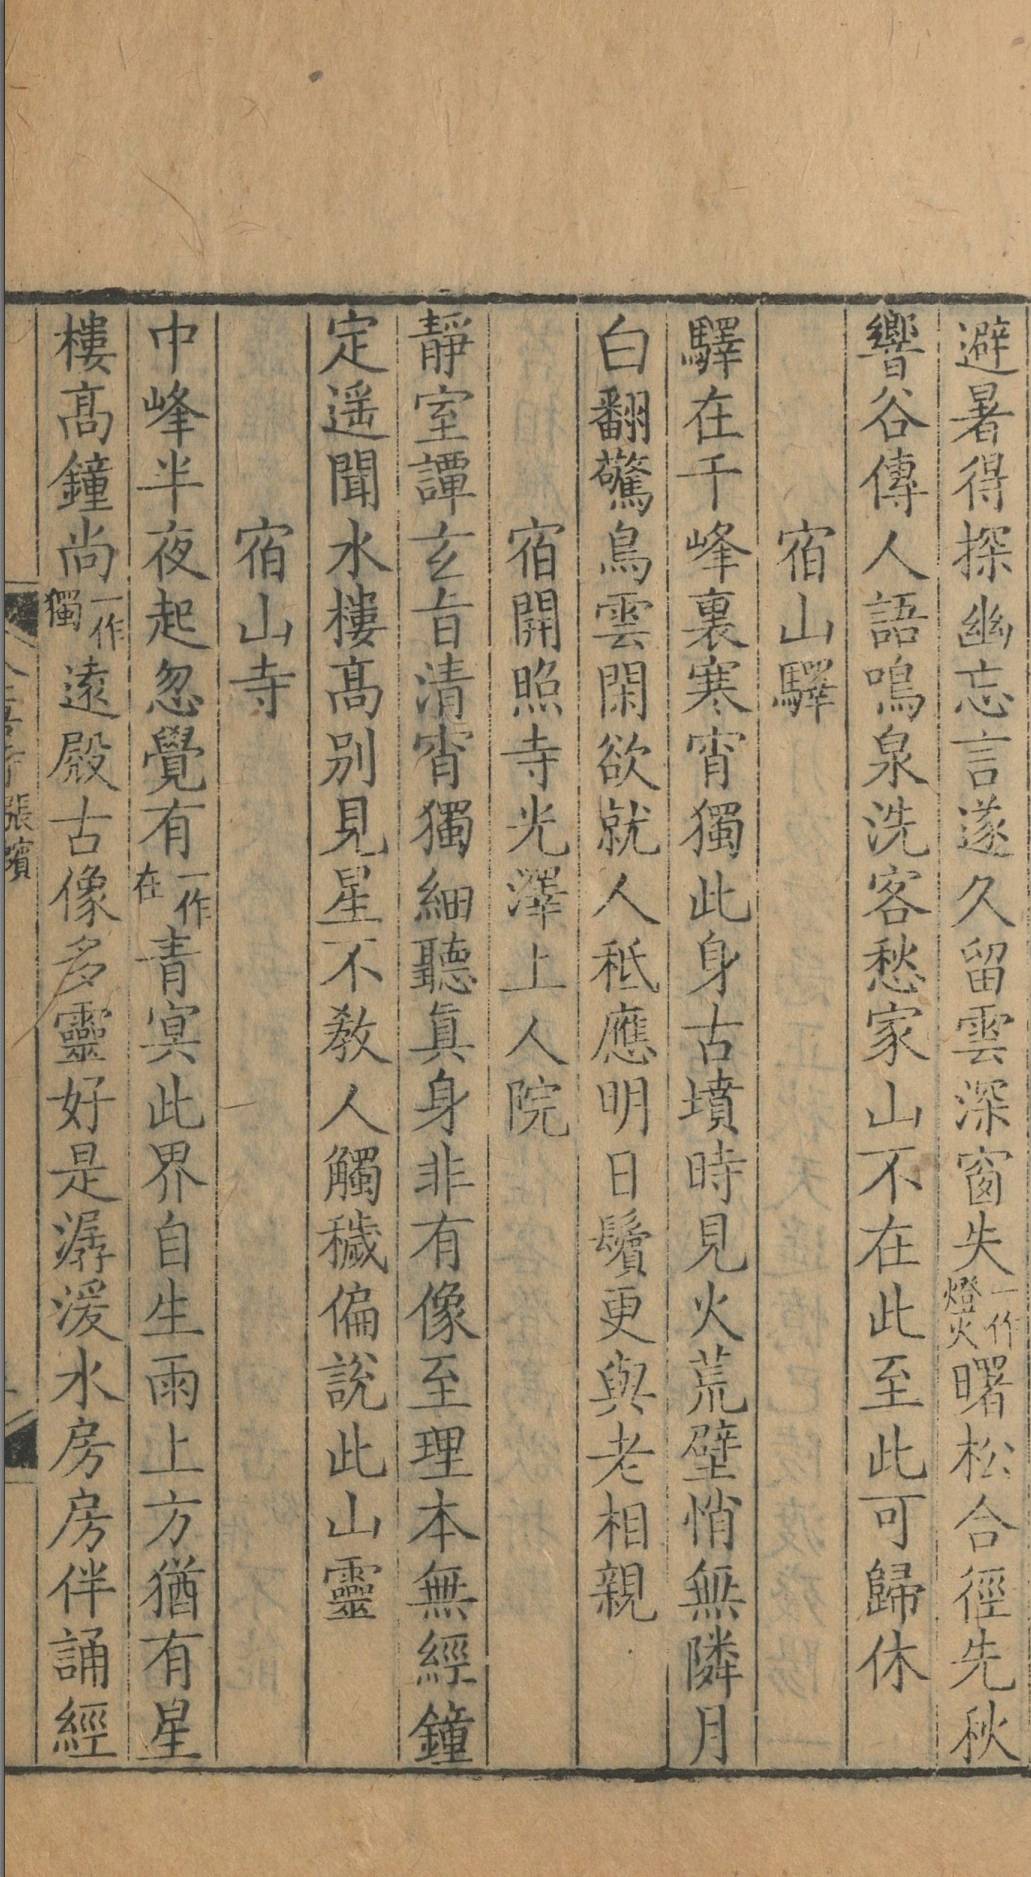 避暑得探幽忘言遂久留雲深窗失一作燈火曙松合徑先秋
響谷傳人語鳴泉洗客愁家山不在此至此可歸休
宿山驛
驛在千峰裏寒宵獨此身古墳時見火荒壁悄無隣月
白翻驚鳥雲閑欲就人秪應明日鬢更與老相親
宿開照寺光澤上人院
靜室譚玄旨清宵獨細聽眞身非有像至理本無經鐘
定遥聞水樓高別見星不教人觸穢偏說此山靈
宿山寺
中峰半夜起忽覺有一作在青冥此界自生雨上方猶有星
樓高鐘尚一作獨遠殿古像多靈好是潺湲水房房伴誦經
張蠙